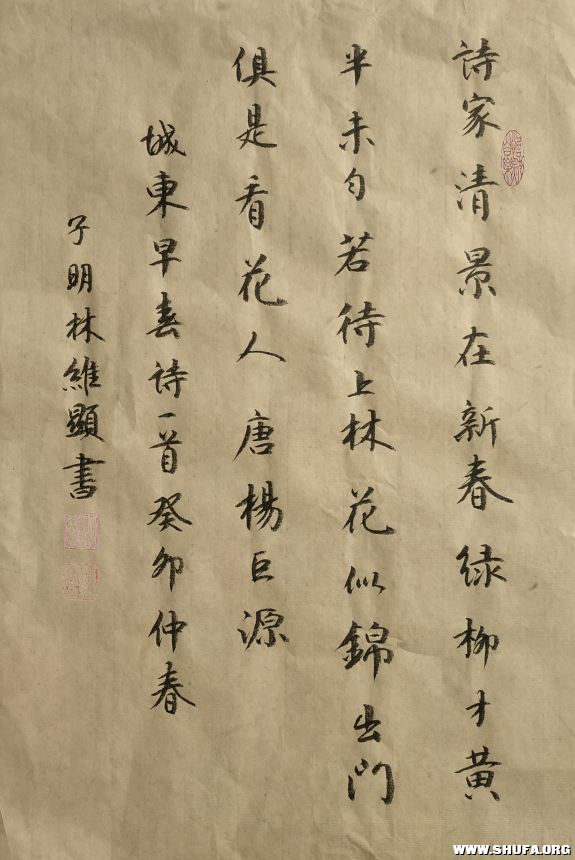 詩家清景在新春緑柳才黄
半未匀若待上林花似錦出門
俱是看花人 唐楊巨源
城東早春詩一首癸卯仲春
子明林維顯書
WWW.SHUFA.ORG